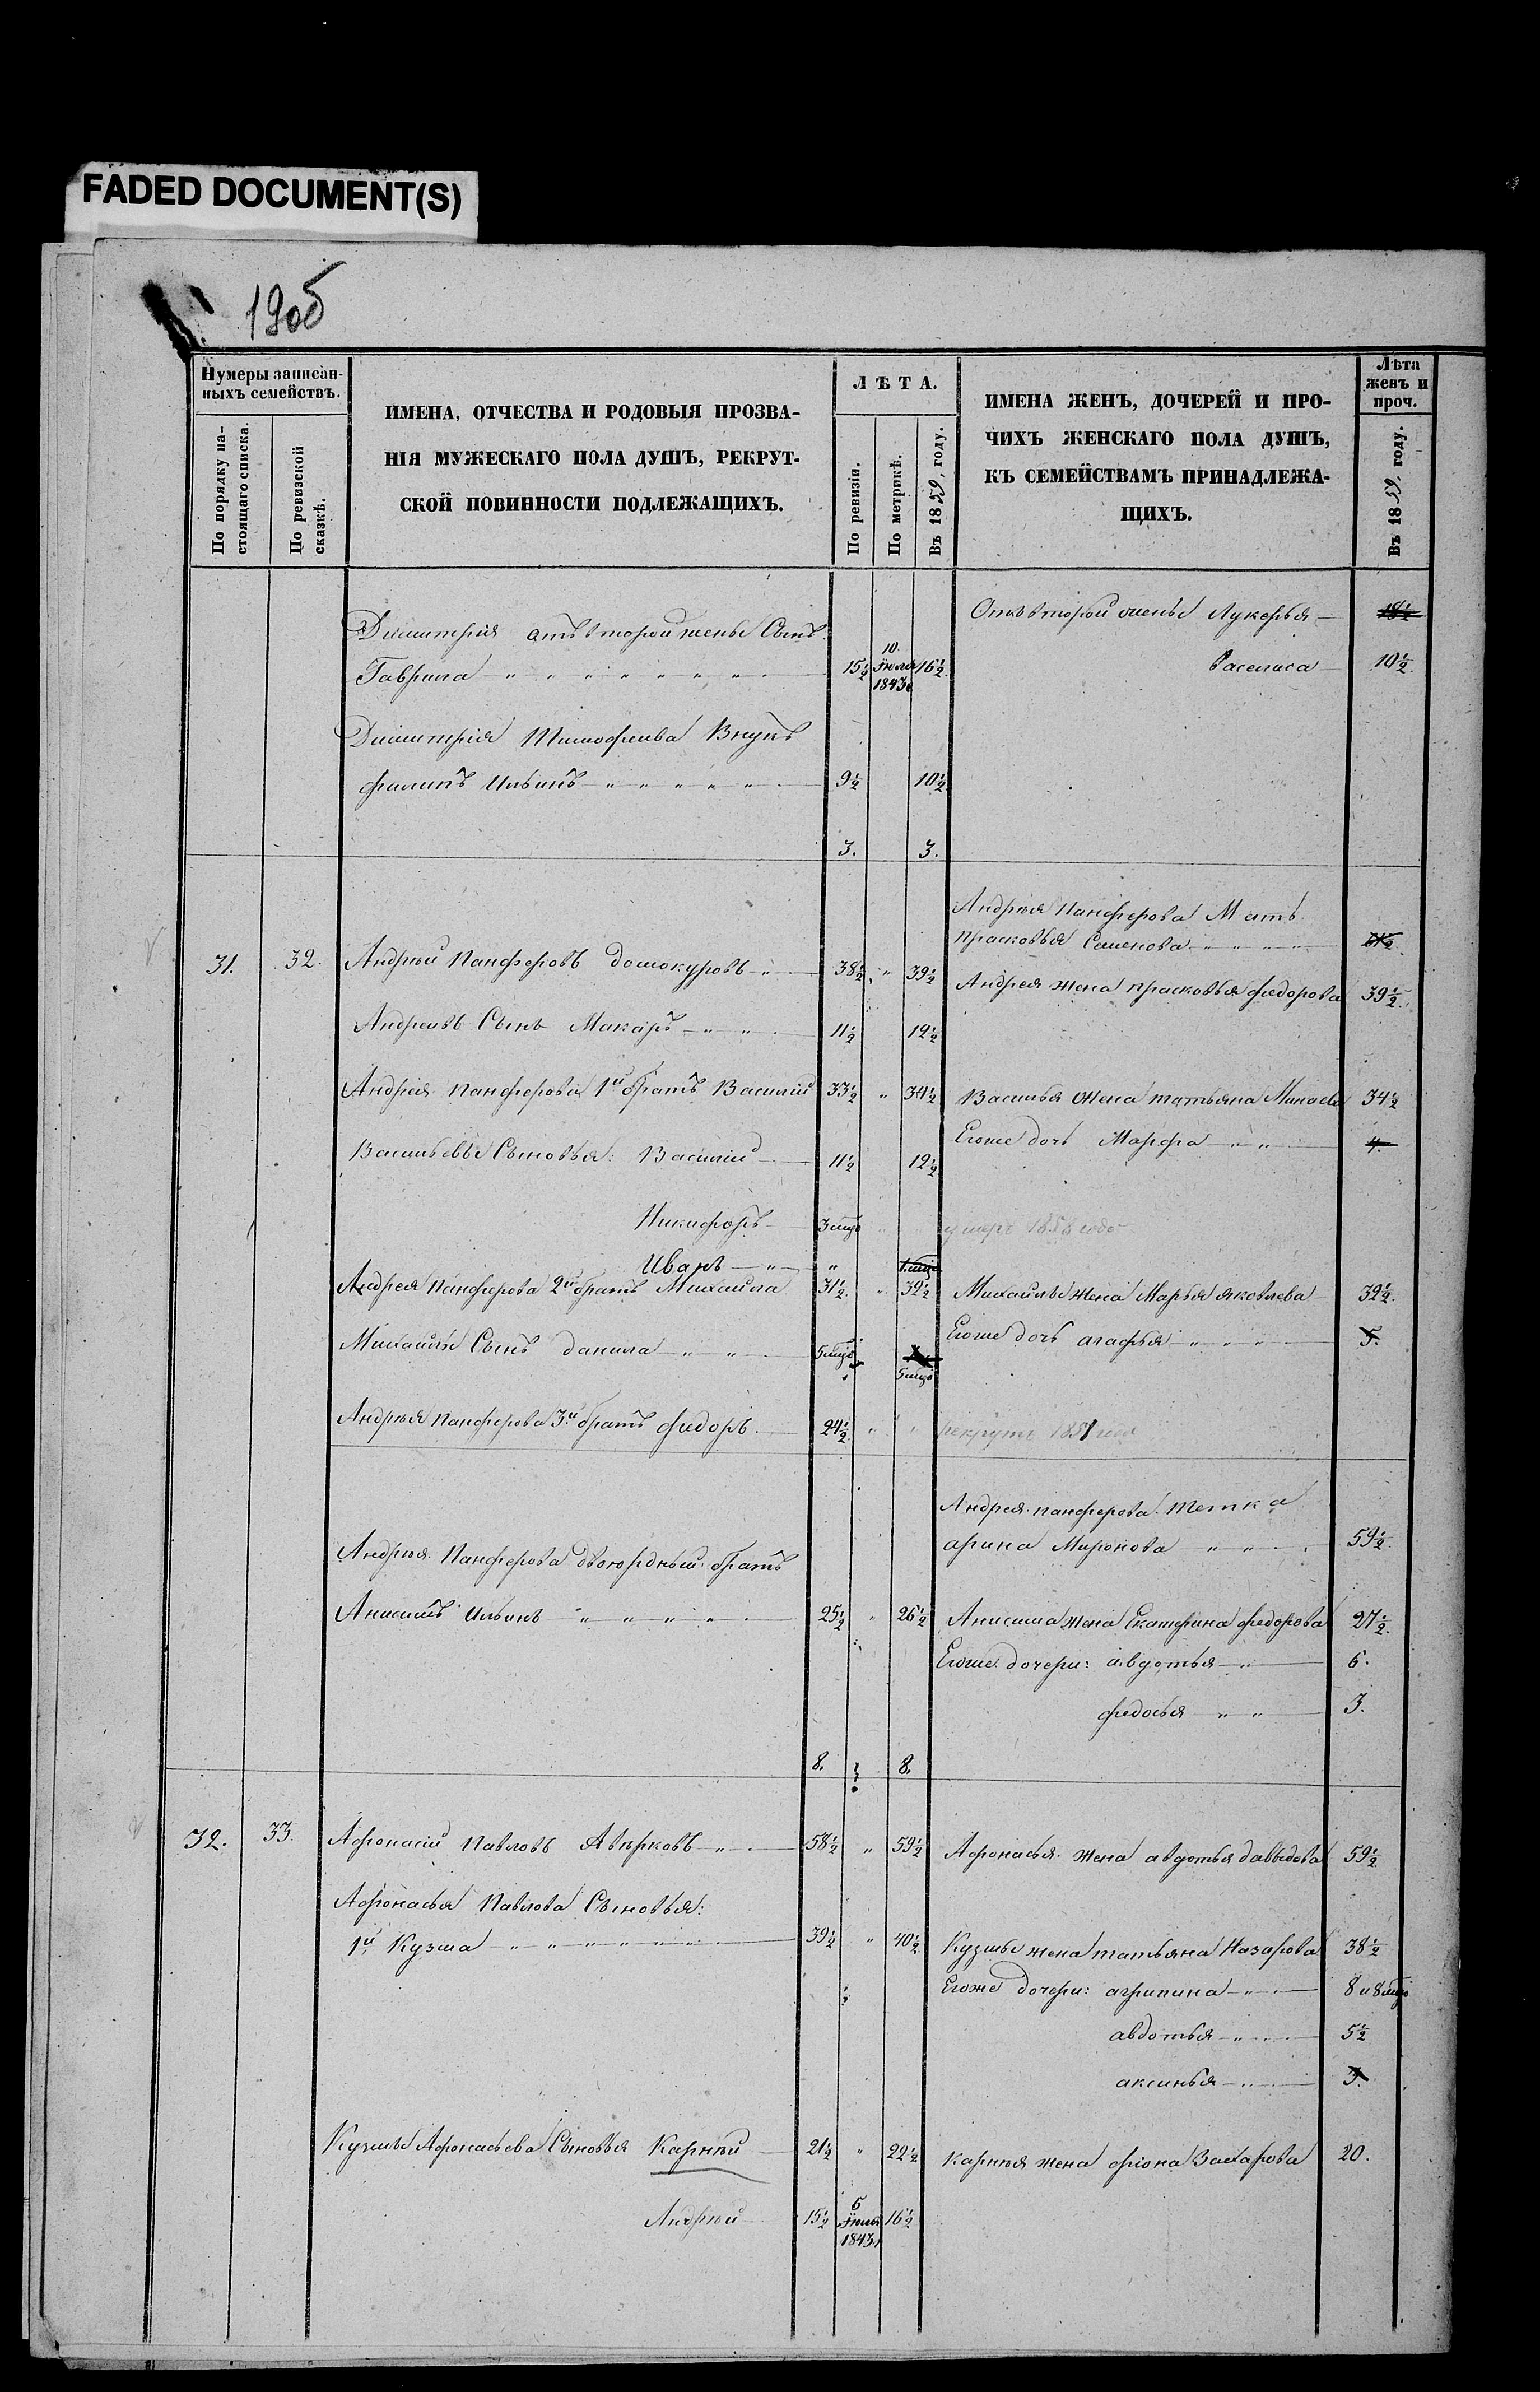 FADED DOCUMENT(S)
190б
Нумеры записан-
ныхъ семействъ.
По порядку на-
стоящаго списка.
По ревизской
сказкѣ.
ИМЕНА, ОТЧЕСТВА И РОДОВЫЯ ПРОЗВА-
НІЯ МУЖЕСКАГО ПОЛА ДУШЪ, РЕКРУТ-
СКОЙ ПОВИННОСТИ ПОДЛЕЖАЩИХЪ.
ЛѢТА.
По ревизіи.
По метрикѣ.
Въ 1859, году.
ИМЕНА ЖЕНЪ, ДОЧЕРЕЙ И ПРО-
ЧИХЪ ЖЕНСКАГО ПОЛА ДУШЪ,
КЪ СЕМЕЙСТВАМЪ ПРИНАДЛЕЖА-
ЩИХЪ.
Лѣта
женъ и
проч.
Въ 1859, году.
Отъ второй жены Лукерья 18½
Димитрія отъ второй жены Сынъ
Гаврила 15½ 10 Іюля 1843 16½
Василиса 10½
Димитрія Тимофеива Внукъ
филипъ Ильинъ 9½ 10½
3. 3.
Андрея Панферова Мать
прасковья Семенова 61½
31. 32. Андрей Панферовъ домокуровъ 38½ " 39½
Андрея жена прасковья федорова 39½
Андреивъ Сынъ Макаръ 11½ 12½
Андрея Панферова 1й братъ Василий 33½ " 34½ Василья жена татьяна Минаева 34½
Егоже дочь Марфа 4.
Васильевы Сыновья: Василий 11½ 12½
Никифоръ 3 мцо умеръ 1858 года
Иванъ "
Андрея Панферова 2й братъ Михайла 31½ " 32½ Михайлы жена Марья яковлева 32½
Егоже дочь агафья 5.
Михайлы Сынъ данила 5 мцо 5 мцо
Андрея Панферова 3й братъ федоръ 24½ " " рекрутъ 1857 года
Андрея панферова тетка
арина Миронова 59½
Андрея Панферова двоюрдный братъ
Анисимъ Ильинъ 25½ " 26½ Анисима жена Екатерина федорова 27½
Егоже дочери: авдотья 6.
федосья 3.
8. 8.
32. 33. Афонасій Павловъ Авѣрковъ 58½ " 59½ Афонасья жена авдотья давыдова 59½
Афонасья Павлова Сыновья:
1й Кузма 39½ " 40½ Кузмы жена татьяна Назарова 38½
Егоже дочери: агрипина 8 и 8 мцо
авдотья 5½
аксинья 3.
Кузмы Афонасьева Сыновья Карнѣй 21½ " 22½ карнея жена фіона Захарова 20.
Андрей 15½ 6 Іюля 1843 16½